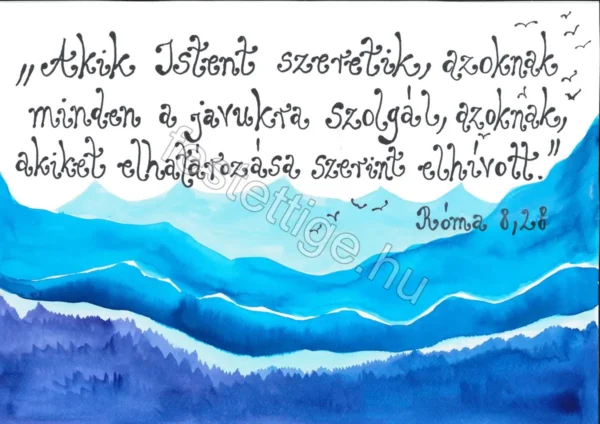 „Akik Istent szeretik, azoknak
minden a javukra szolgál, azoknak,
akiket elhatározása szerint elhívott."
Róma 8,28
festettige.hu